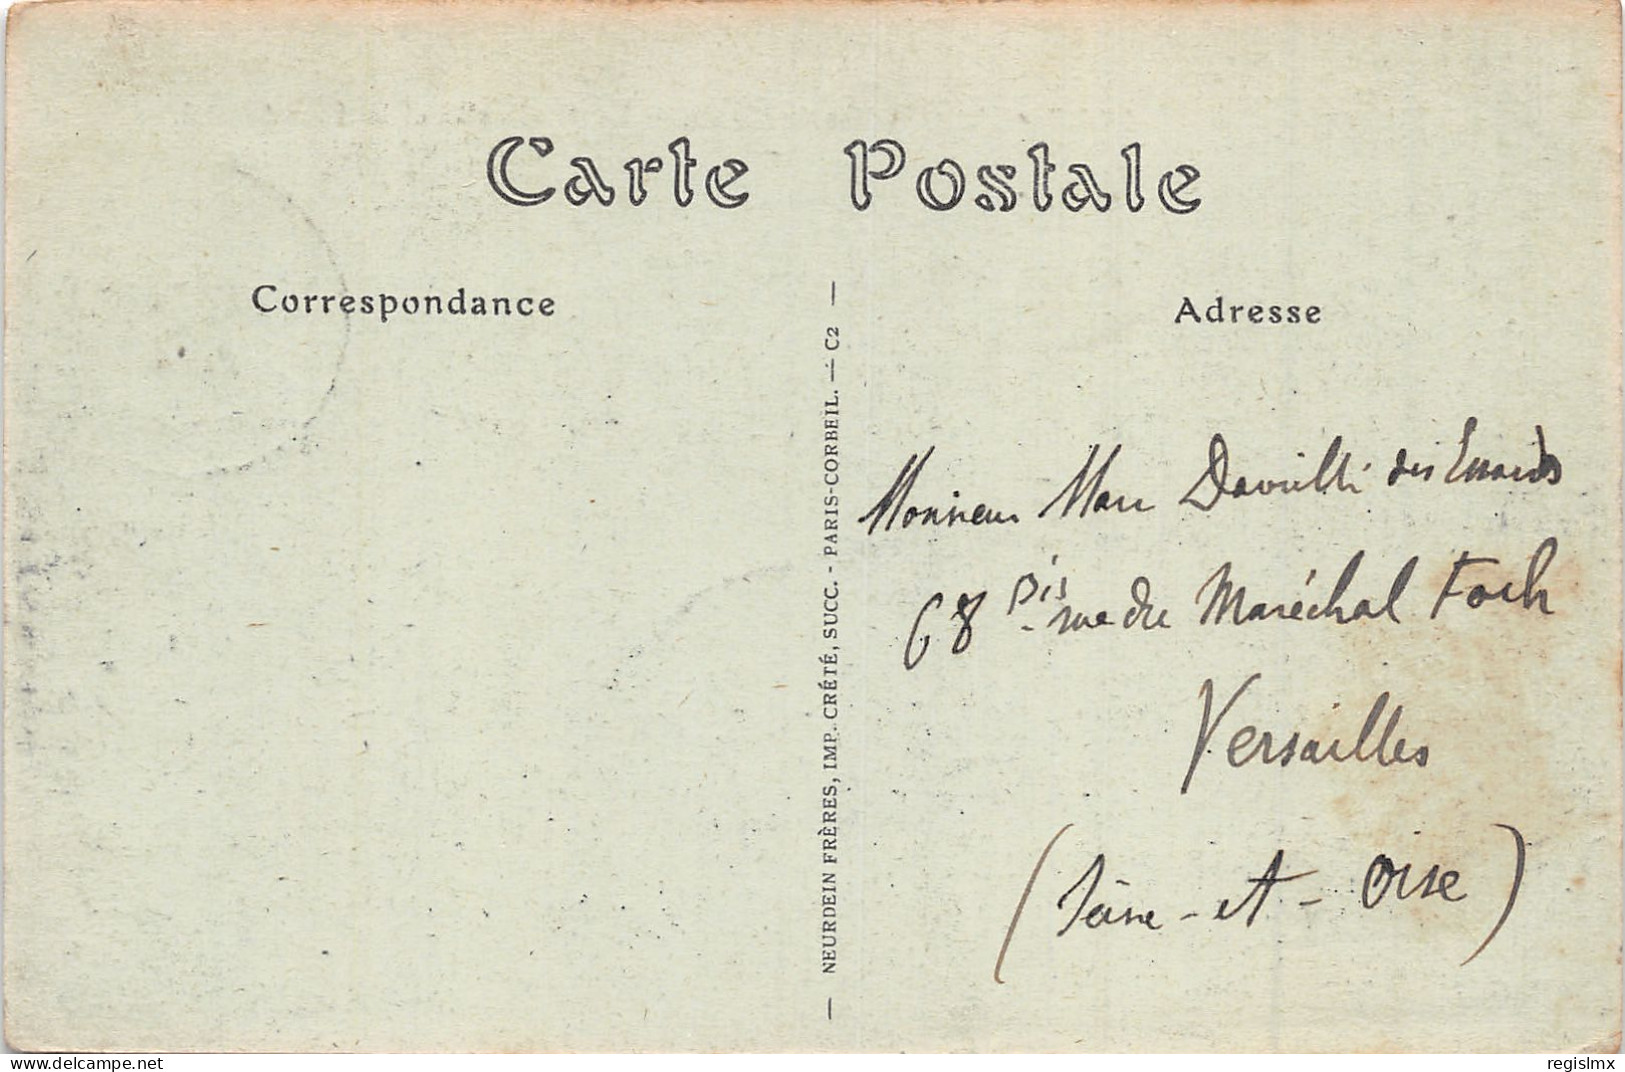 Carte Postale
Correspondance
Adresse
— NEURDEIN FRÈRES, IMP. CRÉTÉ, SUCC. - PARIS-CORBEIL. — C2 —
Monsieur Marc des Essards
68 bis rue du Maréchal Foch
Versailles
(Seine-et-Oise)
www.delcampe.net
regislmx